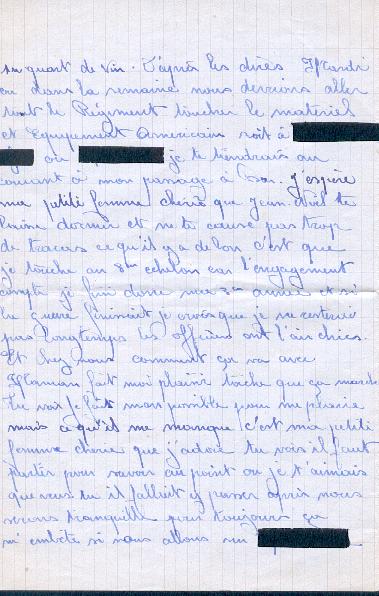 un quart de vin. D'après les dires Mardi
ou dans la semaine nous devrions aller
tout le Régiment toucher le matériel
et Equipement Americain soit à
ou je te tiendrais au
courant à mon passage à J'espère
ma petite femme cherie que Jean doit te
laisser dormir et ne te cause pas trop
de tracas ce qu'il y a de bon c'est que
je touche au 8me echelon car l'engagement
compte je fini donc ma 3me année et si
la guerre finissait je crois que je ne resterai
pas longtemps les officiers ont l'air chics.
Et chez nous comment ça va avec
Maman fait moi plaisir tâche que ça marche
tu vois je fait mon possible pour me plaire
mais ce qu'il me manque c'est ma petite
femme cherie que j'adore tu vois il faut
partir pour savoir au point ou je t'aimais
que veus tu il fallait y passer après nous
serons tranquille pour toujours ça
m'embête si nous allons sur